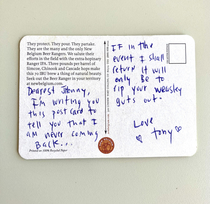 They protect. They pour. They partake.
They are the many and the only New
Belgium Beer Rangers. We salute their
efforts in the field with the extra hopinary
Ranger IPA. Three pounds per barrel of
Simcoe, Chinook and Cascade hops make
this 70 IBU brew a thing of natural beauty
Seek out the Beer Ranger in your territory
at newbelgium.com.
Dearest Johnny,
I'm writing you
this post card to
tell you that I
am never coming
back...
If in the
event I shall
return it will
only be to
rip your weasley
guts out.
Love
Tony